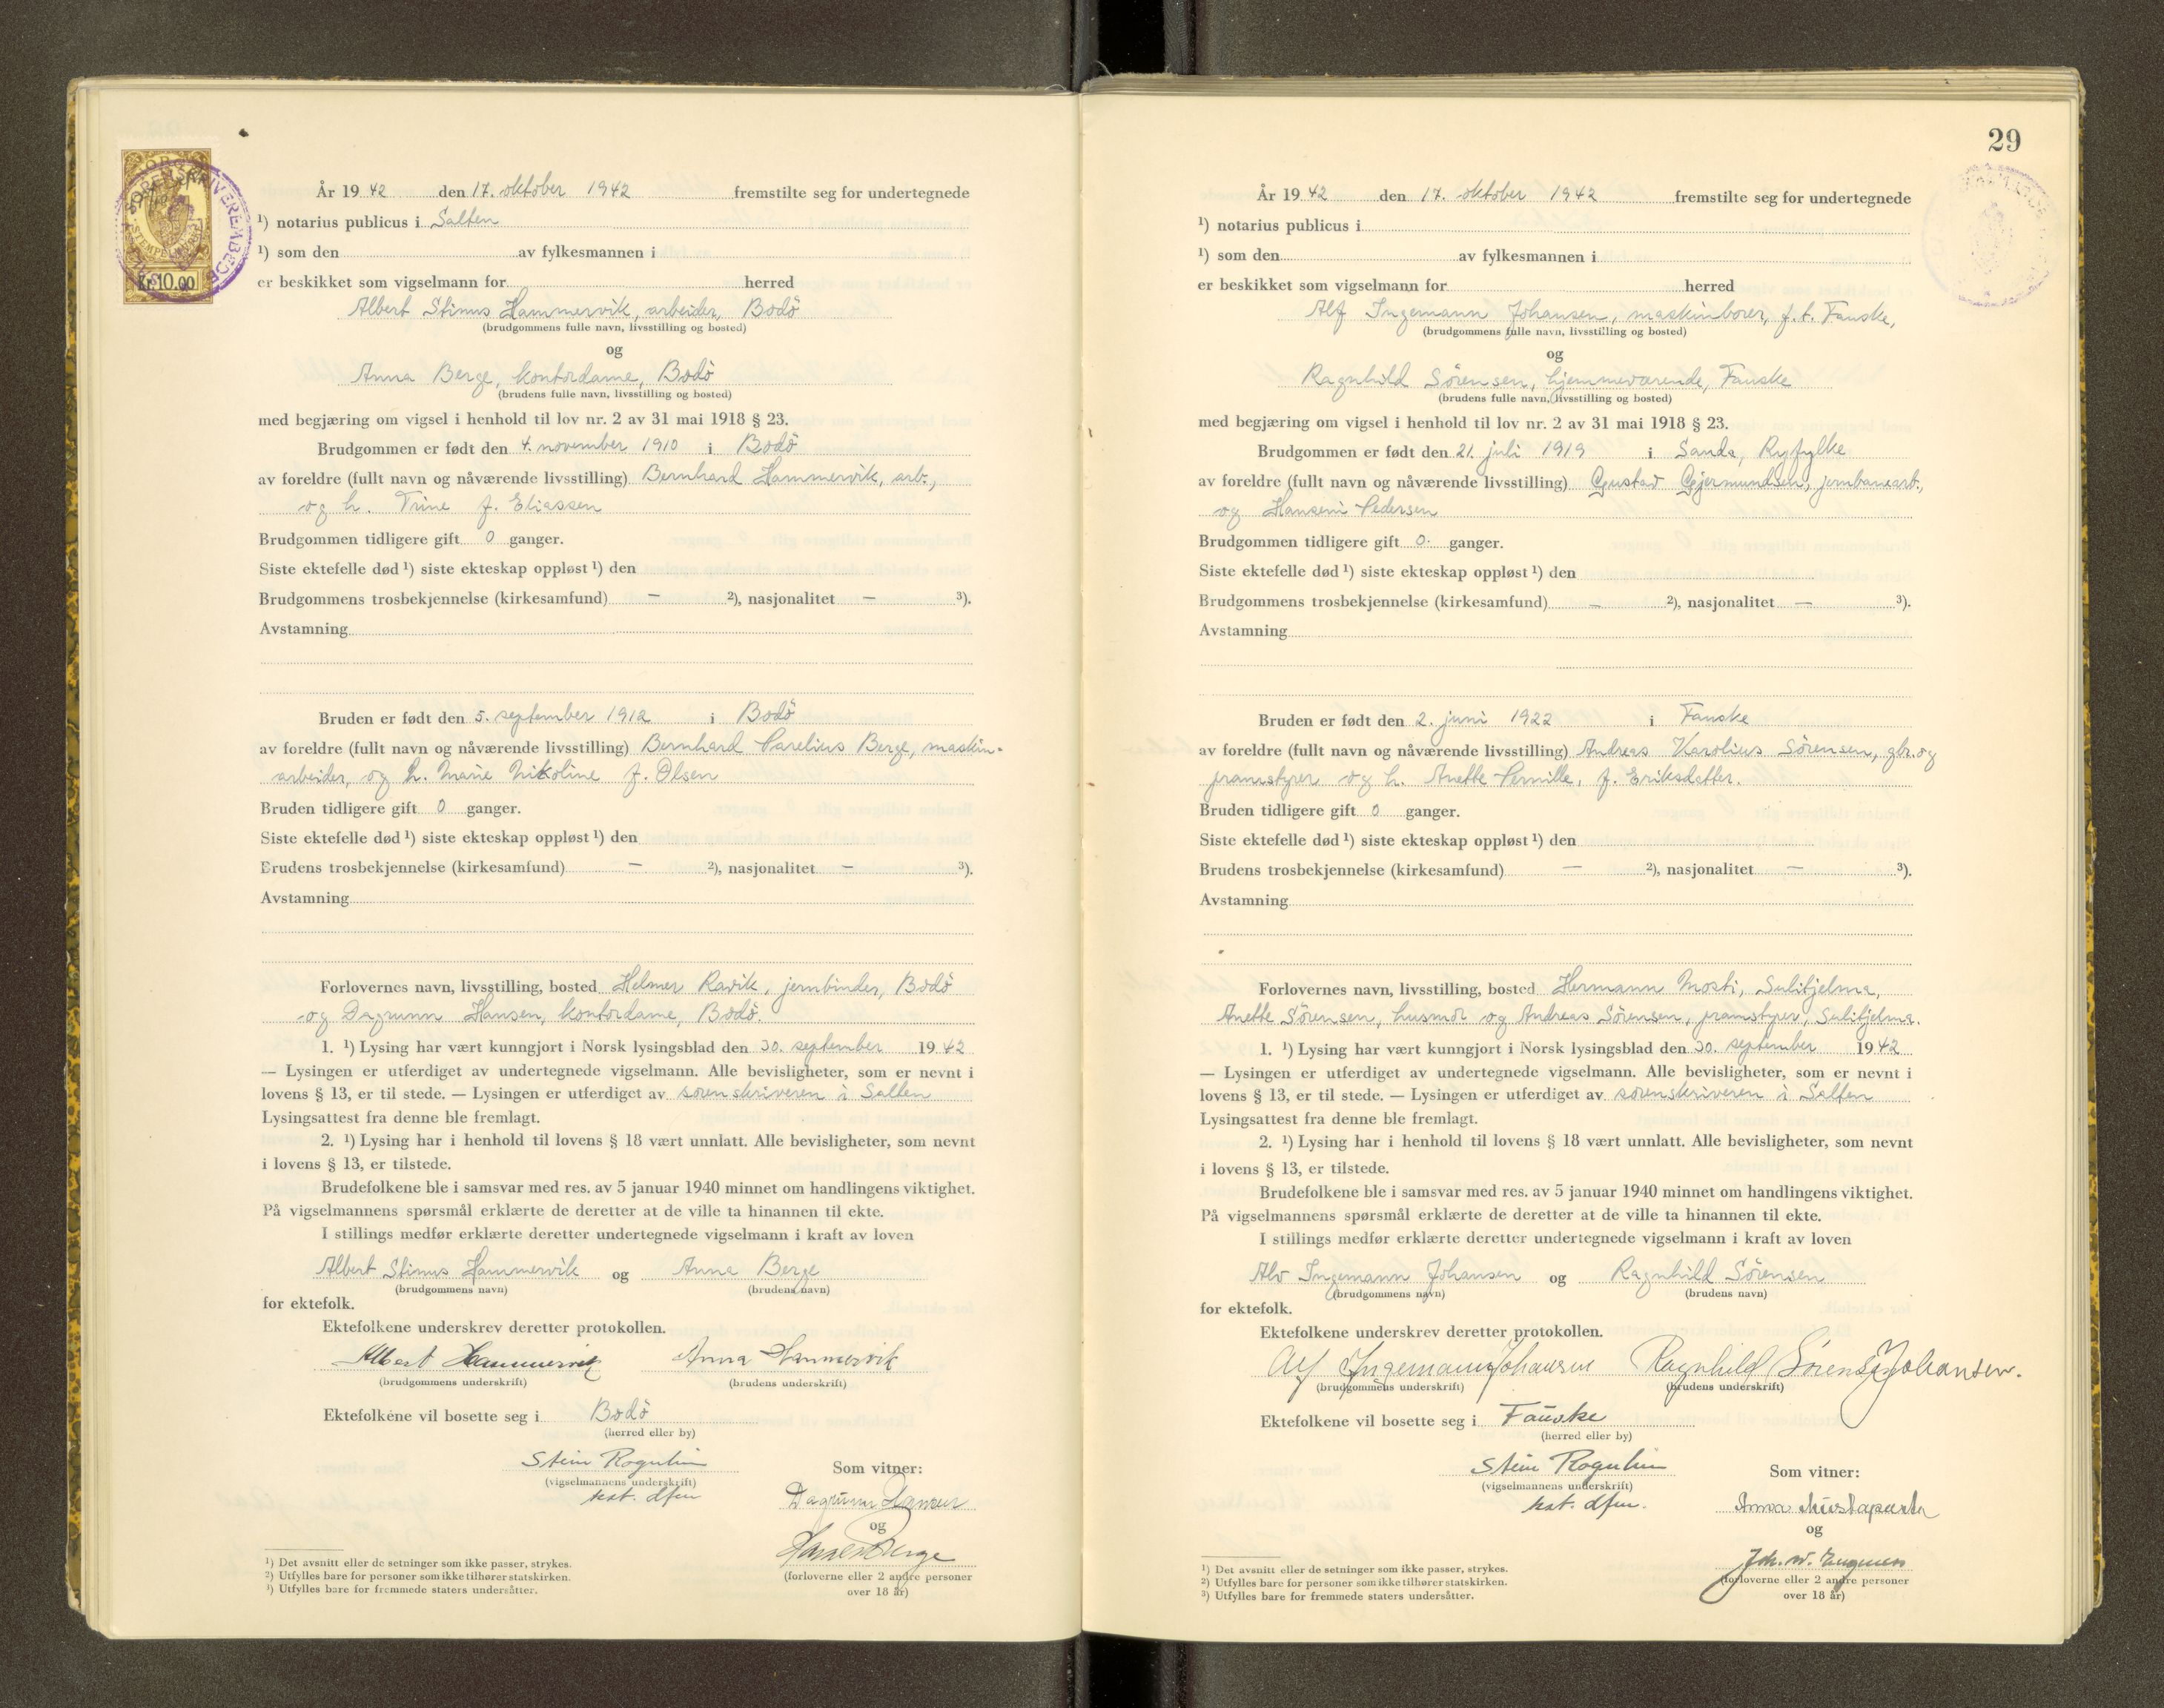 SORENSKRIVEREMBEDE
STEMPEL
Kr. 10.00
År 19 42 den 17. oktober 1942 fremstilte seg for undertegnede
¹) notarius publicus i Salten
¹) som den av fylkesmannen i
er beskikket som vigselmann for herred
Albert Stinus Hammervik, arbeider, Bodö
(brudgommens fulle navn, livsstilling og bosted)
og
Anna Berge, kontordame, Bodö
(brudens fulle navn, livsstilling og bosted)
med begjæring om vigsel i henhold til lov nr. 2 av 31 mai 1918 § 23.
Brudgommen er født den 4. november 1910 i Bodö
av foreldre (fullt navn og nåværende livsstilling) Bernhard Hammervik, arb.,
og h. Trine f. Eliassen
Brudgommen tidligere gift 0 ganger.
Siste ektefelle død ¹) siste ekteskap oppløst ¹) den
Brudgommens trosbekjennelse (kirkesamfund) — ²), nasjonalitet — ³).
Avstamning
Bruden er født den 5. september 1912 i Bodö
av foreldre (fullt navn og nåværende livsstilling) Bernhard Parelius Berge, maskin-
arbeider, og h. Marie Nikoline f. Olsen
Bruden tidligere gift 0 ganger.
Siste ektefelle død ¹) siste ekteskap oppløst ¹) den
Brudens trosbekjennelse (kirkesamfund) — ²), nasjonalitet — ³).
Avstamning
Forlovernes navn, livsstilling, bosted Helmer Ravik, jernbinder, Bodö
og Dagrunn Hansen, kontordame, Bodö.
1. ¹) Lysing har vært kunngjort i Norsk lysingsblad den 30. september 19 42
— Lysingen er utferdiget av undertegnede vigselmann. Alle bevisligheter, som er nevnt i
lovens § 13, er til stede. — Lysingen er utferdiget av sorenskriveren i Salten
Lysingsattest fra denne ble fremlagt.
2. ¹) Lysing har i henhold til lovens § 18 vært unnlatt. Alle bevisligheter, som nevnt
i lovens § 13, er tilstede.
Brudefolkene ble i samsvar med res. av 5 januar 1940 minnet om handlingens viktighet.
På vigselmannens spørsmål erklærte de deretter at de ville ta hinannen til ekte.
I stillings medfør erklærte deretter undertegnede vigselmann i kraft av loven
Albert Stinus Hammervik og Anna Berge
(brudgommens navn) (brudens navn)
for ektefolk.
Ektefolkene underskrev deretter protokollen.
Albert Hammervik Anna Hammervik
(brudgommens underskrift) (brudens underskrift)
Ektefolkene vil bosette seg i Bodö
(herred eller by)
Stein Rognlien Som vitner:
(vigselmannens underskrift)
kst. dfm Dagrunn Hansen
og
Berge
(forloverne eller 2 andre personer
over 18 år)
¹) Det avsnitt eller de setninger som ikke passer, strykes.
²) Utfylles bare for personer som ikke tilhører statskirken.
³) Utfylles bare for fremmede staters undersåtter.
29
År 19 42 den 17. oktober 1942 fremstilte seg for undertegnede
¹) notarius publicus i
¹) som den av fylkesmannen i
er beskikket som vigselmann for herred
Alf Ingemann Johansen, maskinborer, f.t. Fauske,
(brudgommens fulle navn, livsstilling og bosted)
og
Ragnhild Sörensen, hjemmeværende, Fauske
(brudens fulle navn, livsstilling og bosted)
med begjæring om vigsel i henhold til lov nr. 2 av 31 mai 1918 § 23.
Brudgommen er født den 21. juli 1919 i Sanda, Ryfylke
av foreldre (fullt navn og nåværende livsstilling) Gustav Gjermundsen, jernbanearb.,
og Hansine Pedersen
Brudgommen tidligere gift 0. ganger.
Siste ektefelle død ¹) siste ekteskap oppløst ¹) den
Brudgommens trosbekjennelse (kirkesamfund) — ²), nasjonalitet — ³).
Avstamning
Bruden er født den 2. juni 1922 i Fauske
av foreldre (fullt navn og nåværende livsstilling) Andreas Karolius Sörensen, gbr. og
pramstyrer og h. Anette Pernille, f. Eriksdatter.
Bruden tidligere gift 0 ganger.
Siste ektefelle død ¹) siste ekteskap oppløst ¹) den
Brudens trosbekjennelse (kirkesamfund) — ²), nasjonalitet — ³).
Avstamning
Forlovernes navn, livsstilling, bosted Hermann Mosti, Sulitjelma,
Anette Sörensen, husmor og Andreas Sörensen, pramstyrer, Sulitjelma.
1. ¹) Lysing har vært kunngjort i Norsk lysingsblad den 30. september 19 42
— Lysingen er utferdiget av undertegnede vigselmann. Alle bevisligheter, som er nevnt i
lovens § 13, er til stede. — Lysingen er utferdiget av sorenskriveren i Salten
Lysingsattest fra denne ble fremlagt.
2. ¹) Lysing har i henhold til lovens § 18 vært unnlatt. Alle bevisligheter, som nevnt
i lovens § 13, er tilstede.
Brudefolkene ble i samsvar med res. av 5 januar 1940 minnet om handlingens viktighet.
På vigselmannens spørsmål erklærte de deretter at de ville ta hinannen til ekte.
I stillings medfør erklærte deretter undertegnede vigselmann i kraft av loven
Alv Ingemann Johansen og Ragnhild Sörensen
(brudgommens navn) (brudens navn)
for ektefolk.
Ektefolkene underskrev deretter protokollen.
Alf Ingemann Johansen Ragnhild Sörens Johansen.
(brudgommens underskrift) (brudens underskrift)
Ektefolkene vil bosette seg i Fauske
(herred eller by)
Stein Rognlien Som vitner:
(vigselmannens underskrift)
kst. dfm. Anna Mustaparta
og
Joh. W.
(forloverne eller 2 andre personer
over 18 år)
¹) Det avsnitt eller de setninger som ikke passer, strykes.
²) Utfylles bare for personer som ikke tilhører statskirken.
³) Utfylles bare for fremmede staters undersåtter.